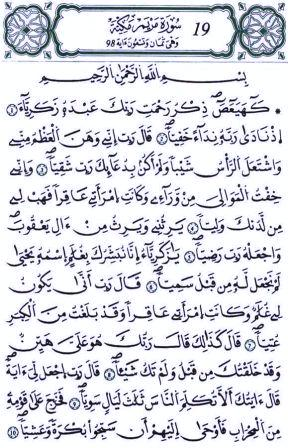 19
سُورَةُ مَرْيَمَ مَكِّيَّة
وَهْيَ ثَمَانٌ وَتِسْعُونَ ءَايَة 98
بِسْمِ اللَّهِ الرَّحْمَٰنِ الرَّحِيمِ
كَهَيَعَصَ ذِكْرُ رَحْمَتِ رَبِّكَ عَبْدَهُ زَكَرِيَّآءَ
إِذْ نَادَىٰ رَبَّهُ نِدَآءً خَفِيّاً قَالَ رَبِّ إِنِّي وَهَنَ الْعَظْمُ مِنِّي
وَاشْتَعَلَ الرَّأْسُ شَيْباً وَلَمْ أَكُنْ بِدُعَآئِكَ رَبِّ شَقِيّاً وَإِنِّي
خِفْتُ الْمَوَالِيَ مِنْ وَرَآءِي وَكَانَتِ امْرَأَتِي عَاقِراً فَهَبْ لِي
مِن لَّدُنكَ وَلِيّاً يَرِثُنِي وَيَرِثُ مِنْ ءَالِ يَعْقُوبَ
وَاجْعَلْهُ رَبِّ رَضِيّاً يَٰزَكَرِيَّآءُ إِنَّا نُبَشِّرُكَ بِغُلَٰمٍ اِسْمُهُ يَحْيَىٰ
لَمْ نَجْعَل لَّهُ مِن قَبْلُ سَمِيّاً قَالَ رَبِّ أَنَّىٰ يَكُونُ
لِي غُلَٰمٌ وَكَانَتِ امْرَأَتِي عَاقِراً وَقَدْ بَلَغْتُ مِنَ الْكِبَرِ
عُتِيّاً قَالَ كَذَٰلِكَ قَالَ رَبُّكَ هُوَ عَلَيَّ هَيِّنٌ
وَقَدْ خَلَقْتُكَ مِن قَبْلُ وَلَمْ تَكُ شَيْئاً قَالَ رَبِّ اجْعَل لِّي ءَايَةً
قَالَ ءَايَتُكَ أَلَّا تُكَلِّمَ النَّاسَ ثَلَٰثَ لَيَالٍ سَوِيّاً فَخَرَجَ عَلَىٰ قَوْمِهِ
مِنَ الْمِحْرَابِ فَأَوْحَىٰ إِلَيْهِمْ أَن سَبِّحُوا بُكْرَةً وَعَشِيّاً